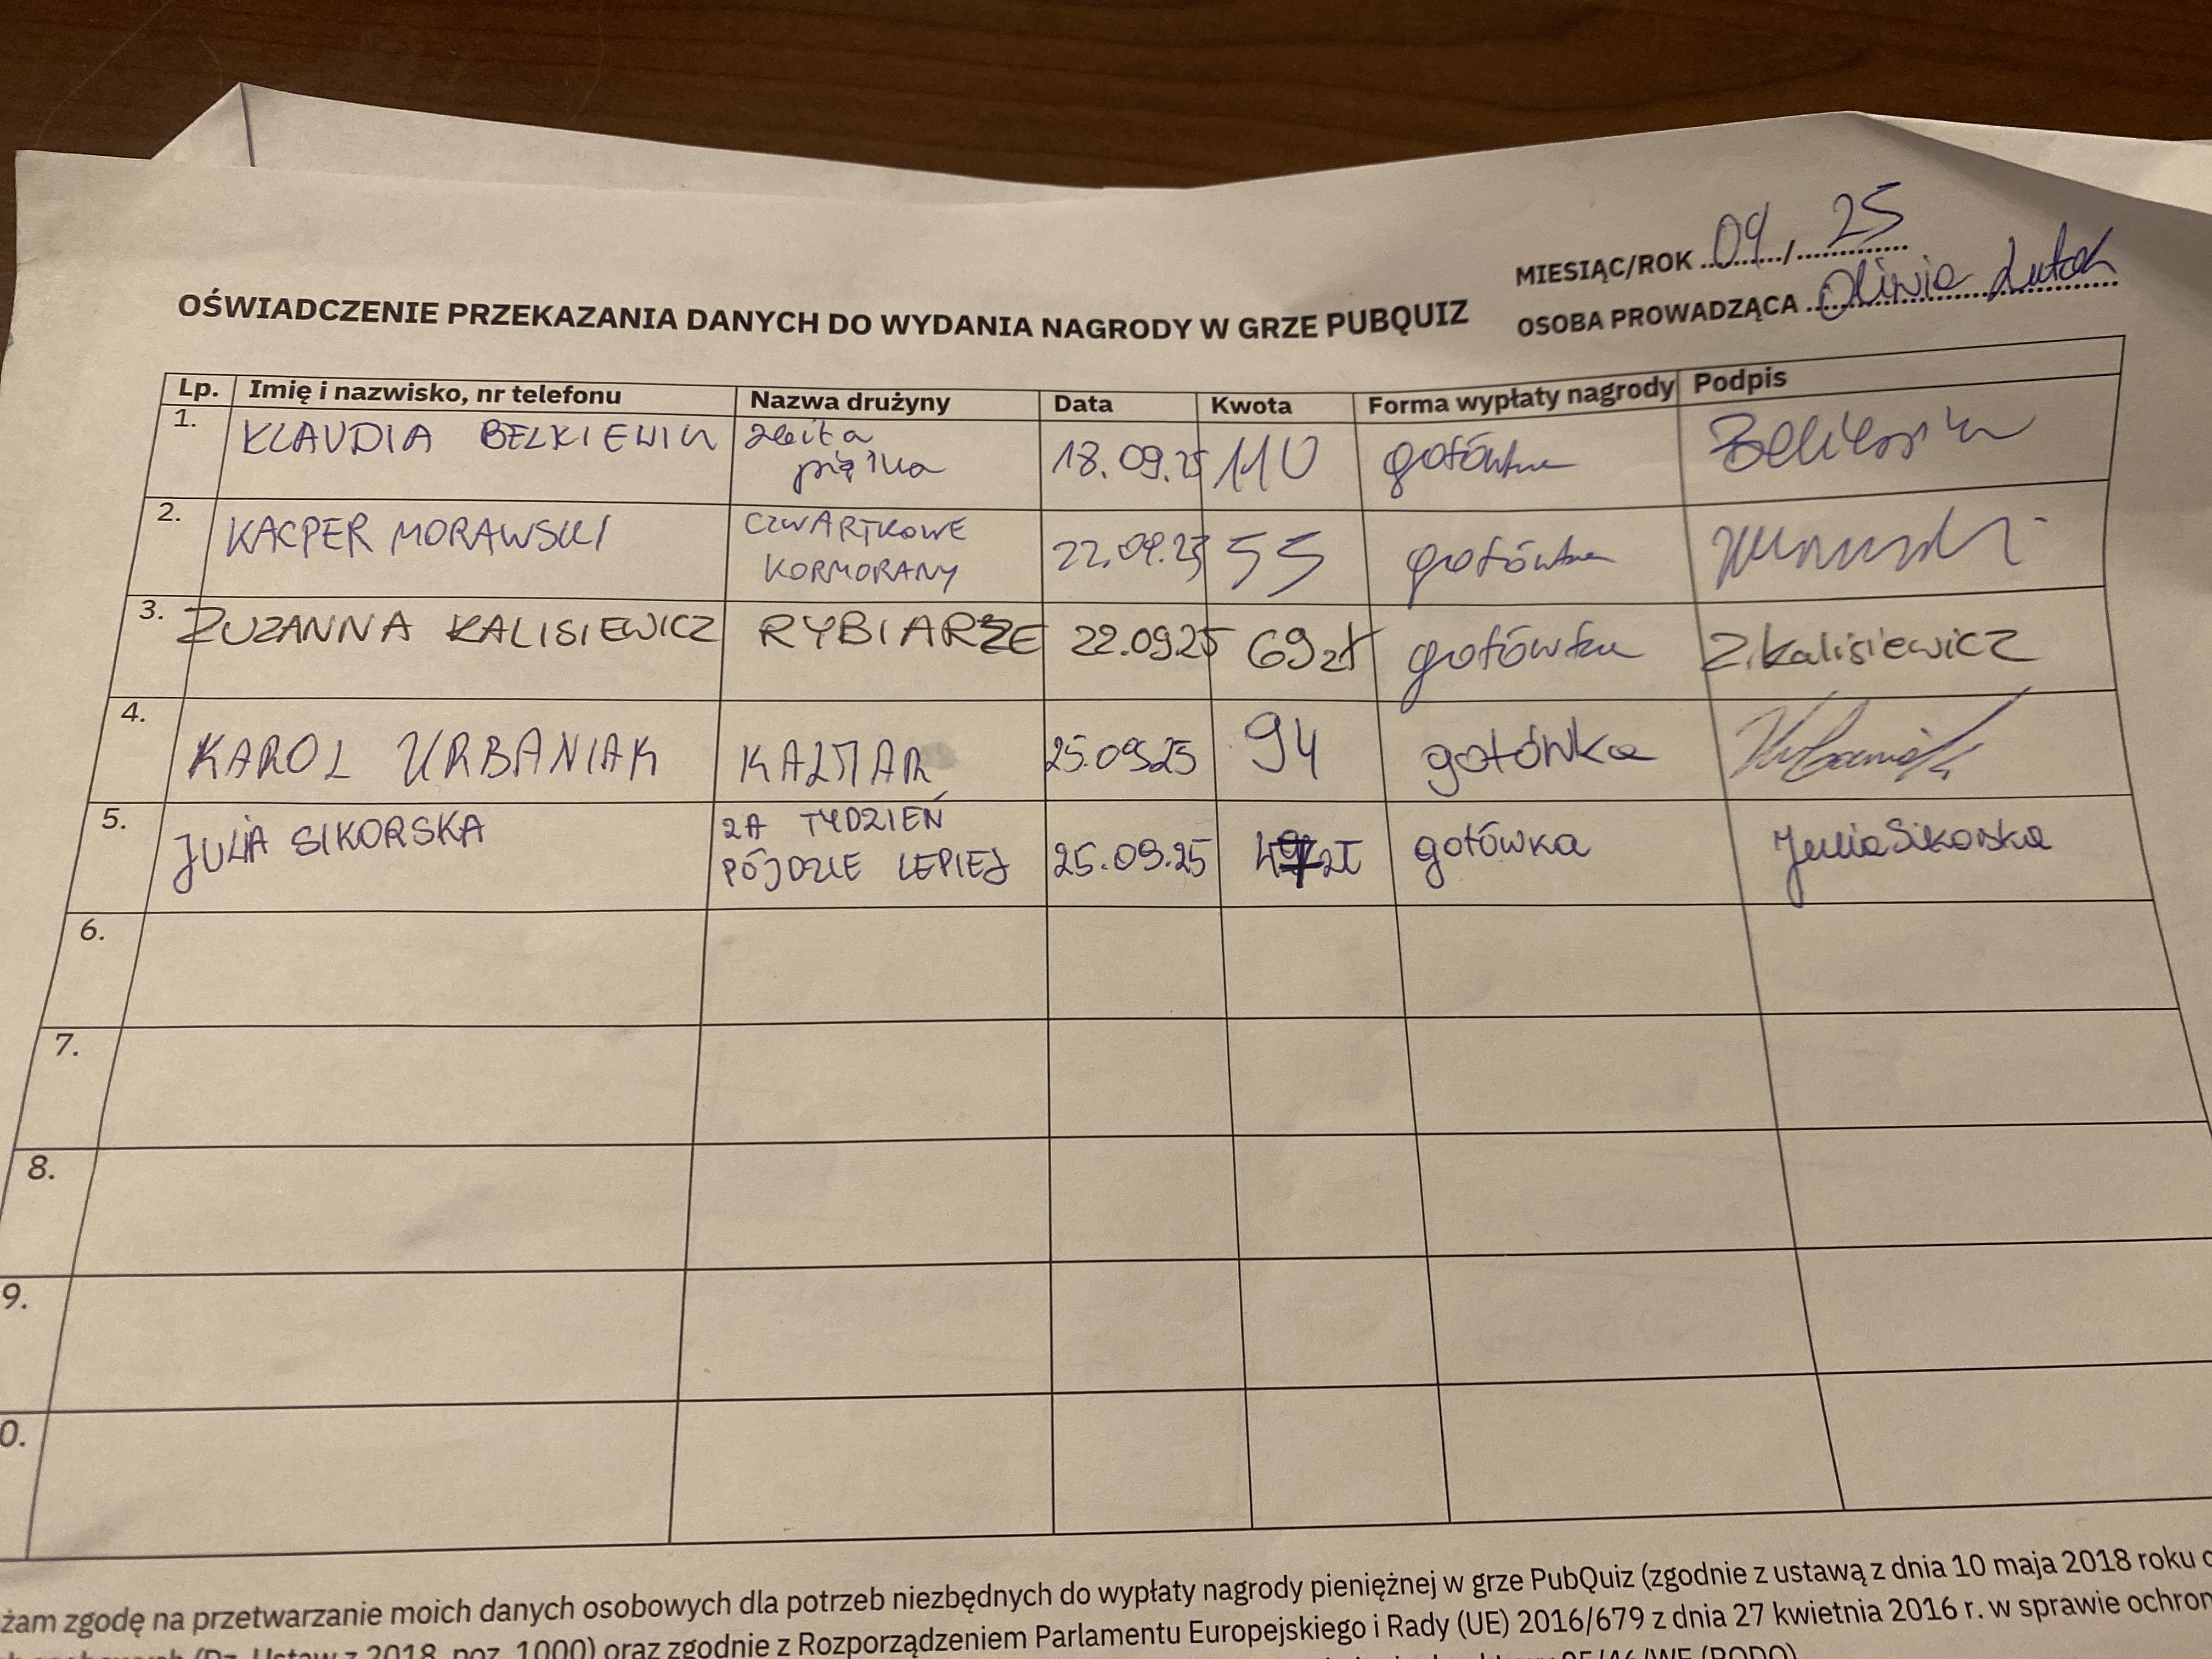 MIESIĄC/ROK 09 / 25
OSOBA PROWADZĄCA Oliwia
OŚWIADCZENIE PRZEKAZANIA DANYCH DO WYDANIA NAGRODY W GRZE PUBQUIZ
Lp. Imię i nazwisko, nr telefonu Nazwa drużyny Data Kwota Forma wypłaty nagrody Podpis
1. KLAUDIA 18.09.25 110 gotówka
2. KACPER MORAWSKI CZWARTKOWE 22.09.25 55 gotówka
KORMORANY
3. ZUZANNA KALISIEWICZ RYBIARZE 22.09.25 69 zł gotówka Z. Kalisiewicz
4. KAROL URBANIAK KALMAR 25.09.25 94 gotówka
5. JULIA SIKORSKA ZA TYDZIEŃ 25.09.25 zł gotówka Julia Sikorska
PÓJDZIE LEPIEJ
6.
7.
8.
9.
0.
żam zgodę na przetwarzanie moich danych osobowych dla potrzeb niezbędnych do wypłaty nagrody pieniężnej w grze PubQuiz (zgodnie z ustawą z dnia 10 maja 2018 roku o
(Dz. Ustaw z 2018, poz. 1000) oraz zgodnie z Rozporządzeniem Parlamentu Europejskiego i Rady (UE) 2016/679 z dnia 27 kwietnia 2016 r. w sprawie ochron
95/46/WE (RODO)